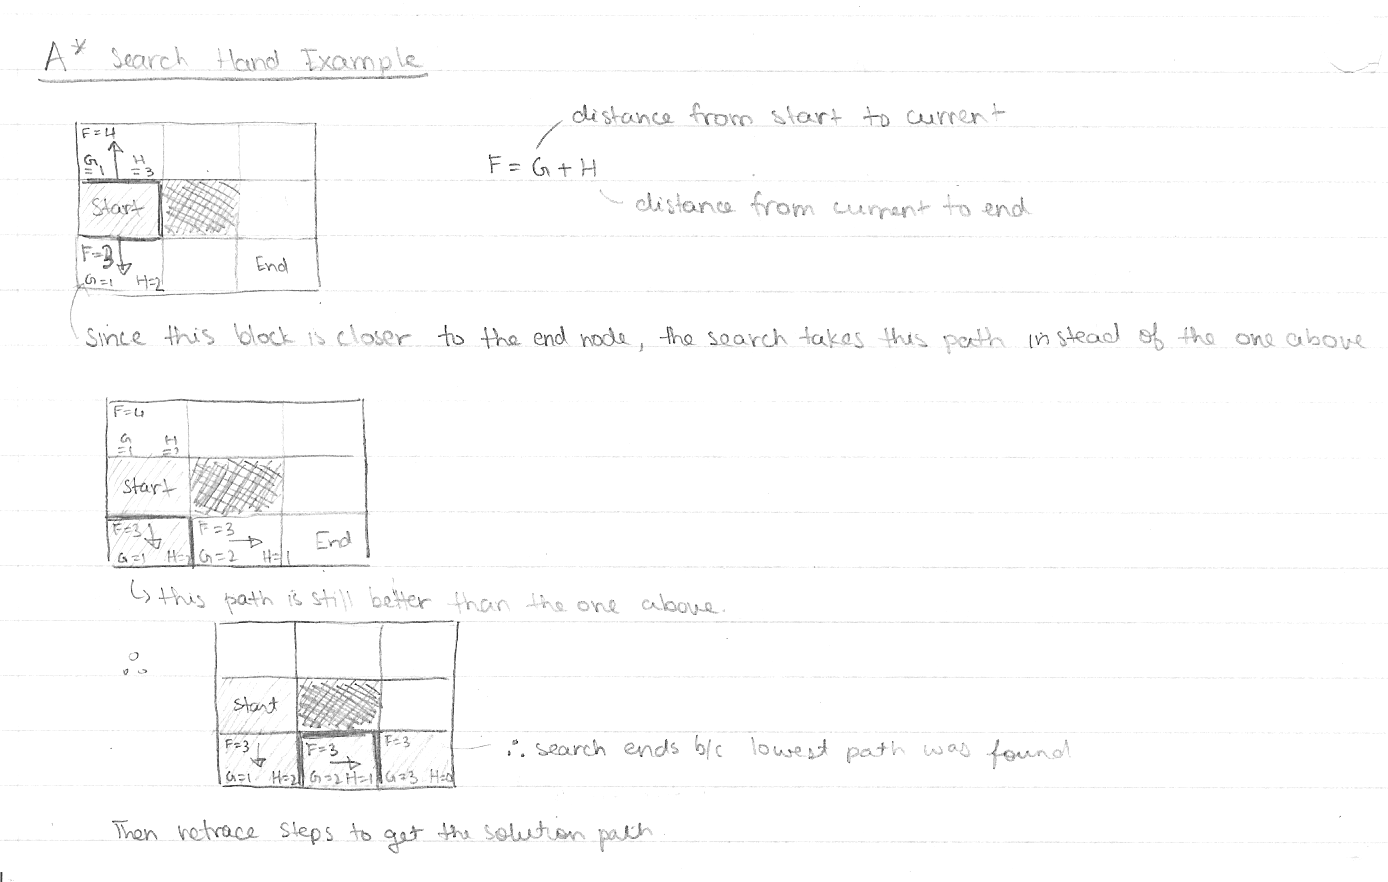 A* Search Hand Example
distance from start to current
F = G + H
distance from current to end
F=4
G=1 H=3
Start
F=3
G=1 H=2
End
since this block is closer to the end node, the search takes this path instead of the one above
F=4
G=1
Start
F=3 F=3
G=1 H=2 G=2 H=1 End
↳ this path is still better than the one above.
∴
Start
F=3 F=3 F=3
G=1 H=2 G=2 H=1 G=3 H=0
∴ search ends b/c lowest path was found
Then retrace steps to get the solution path.